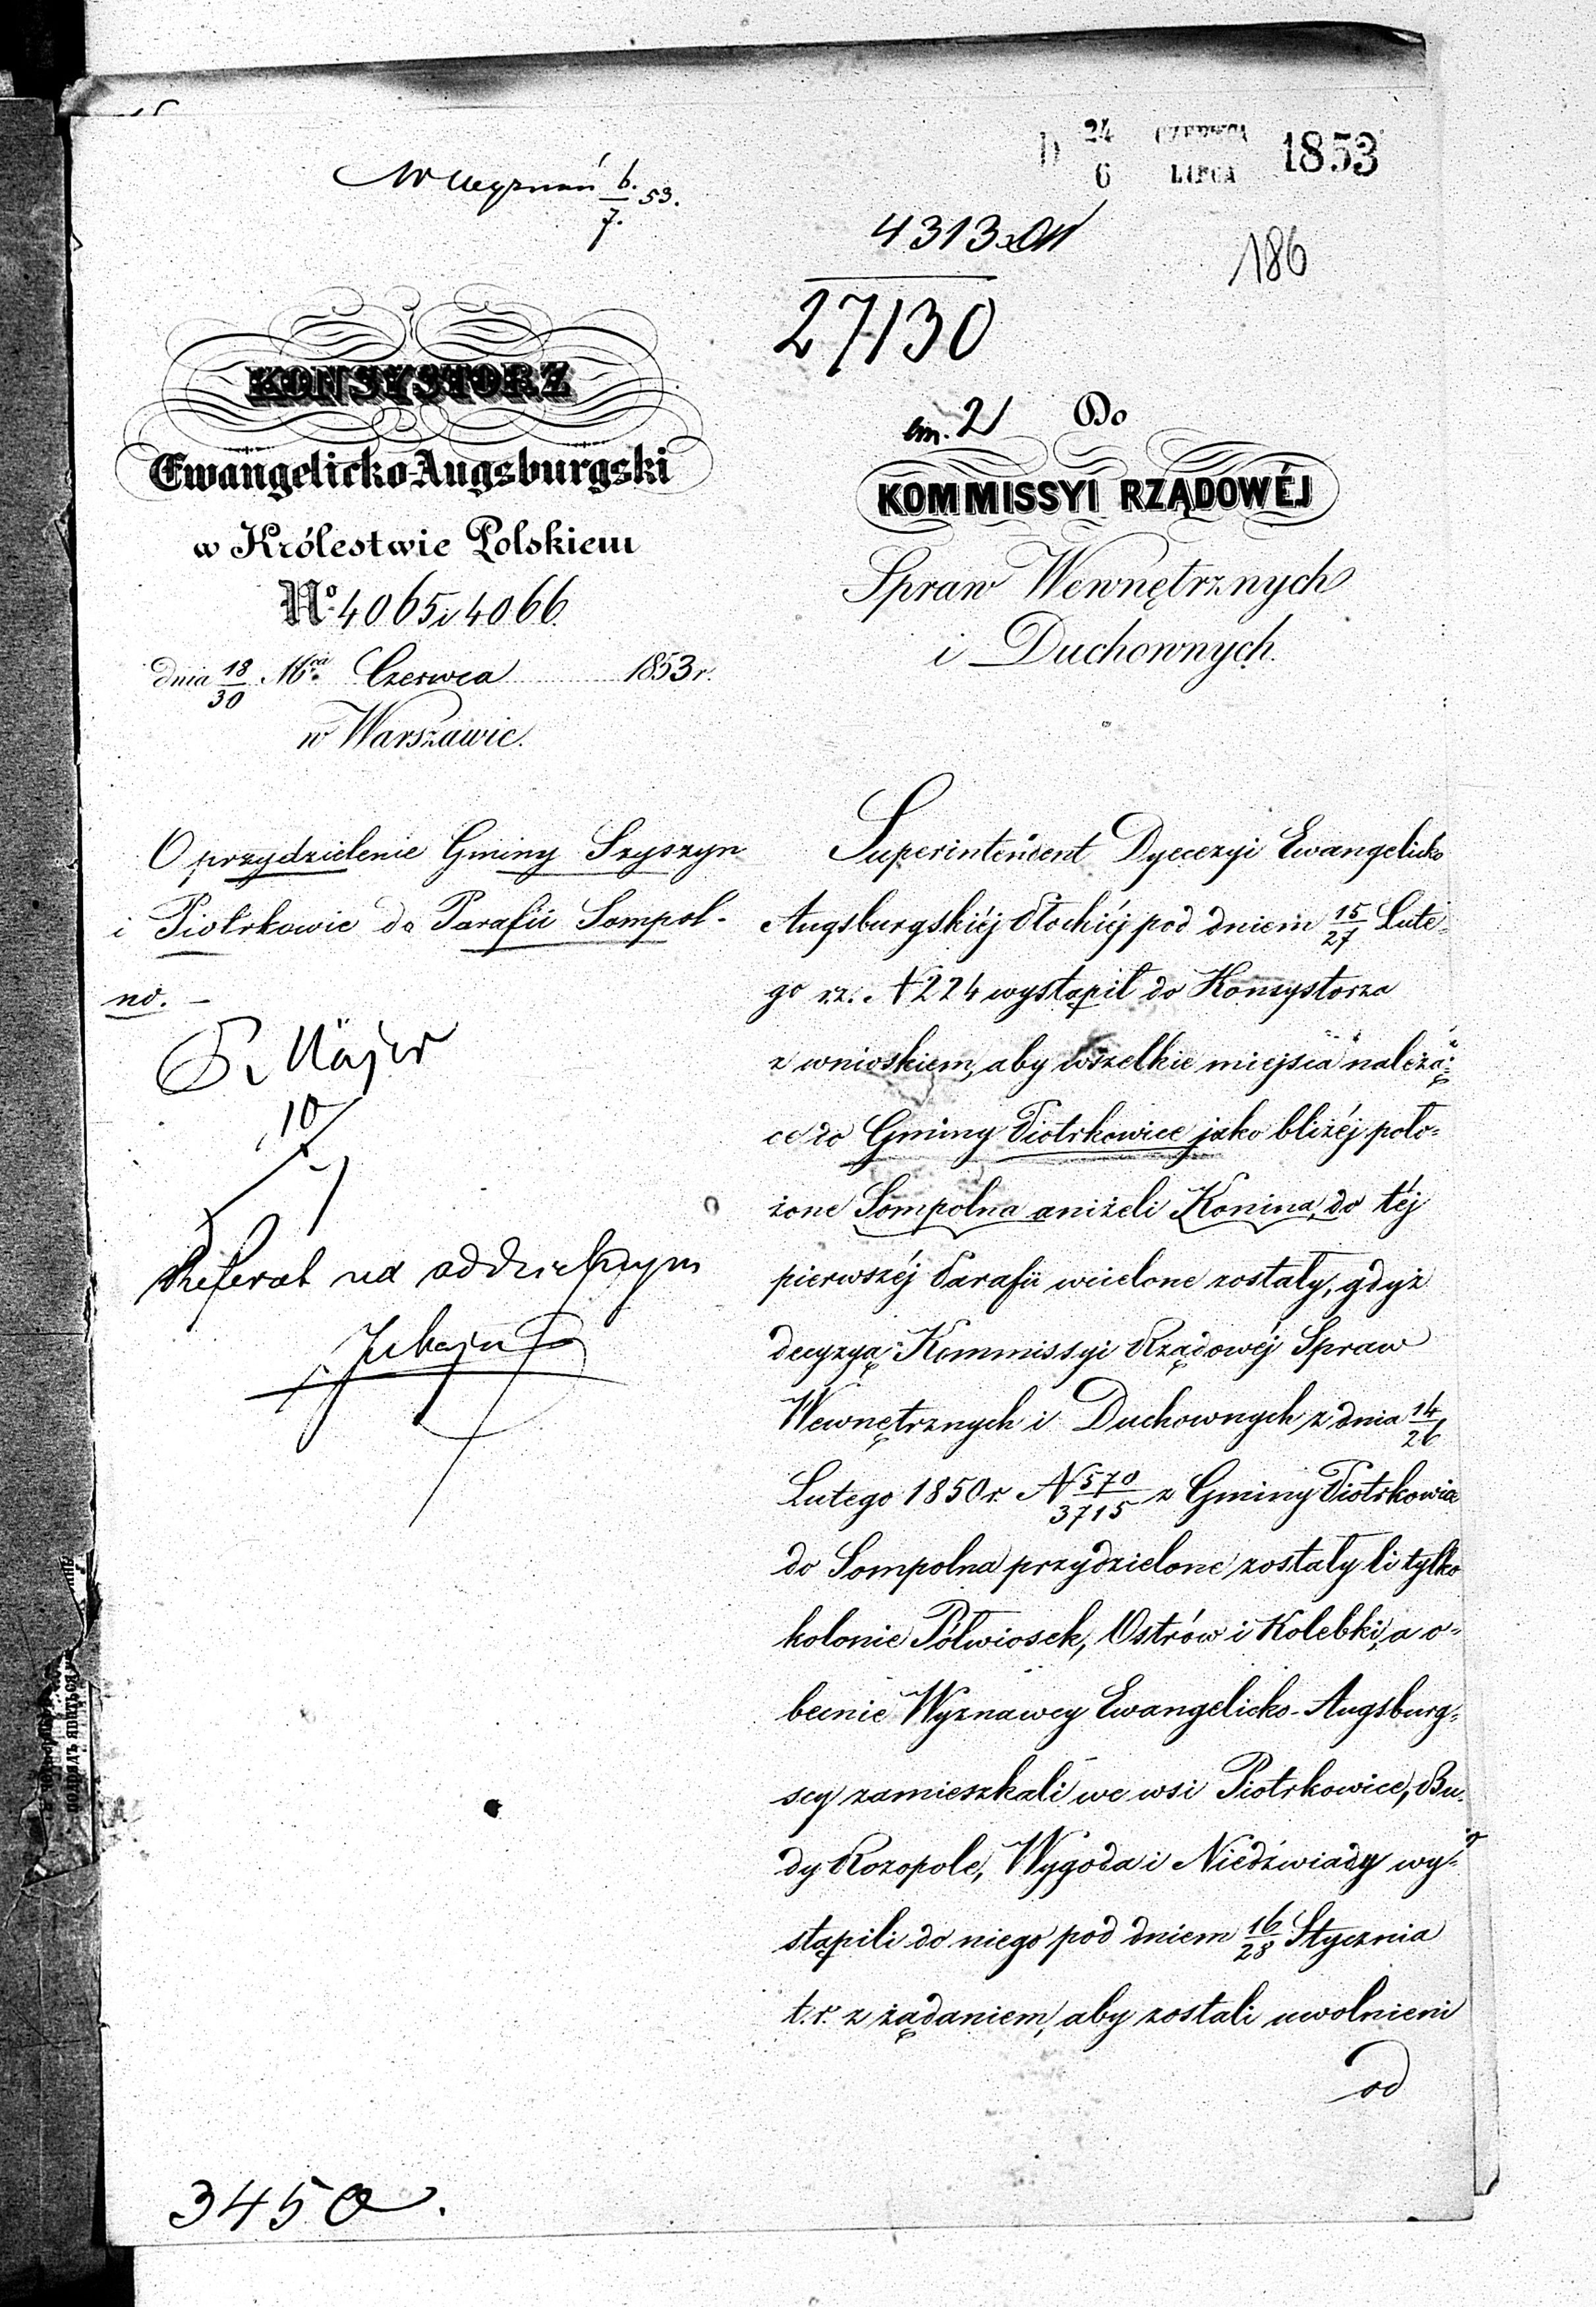 D 24/6 CZERWCA/LIPCA 1853
W Wyznań 6./7. 53.
4313
27130
186
KONSYSTORZ
Ewangelicko-Augsburgski
w Królestwie Polskiem
No. 4065 i 4066.
dnia 18/30 Mca Czerwca 1853 r.
w Warszawie.
O przydzielenie Gminy Szyszyn
i Piotrkowic do Parafii Sompol-
no. –
P. Majer
10/7
Referat na oddzielnym
3450.
zm. 2 Do
KOMMISSYI RZĄDOWÉJ
Spraw Wewnętrznych
i Duchownych.
Superintendent Dyecezyi Ewangelicko
Augsburgskiéj Płockiéj pod dniem 15/27 Lute-
go r.z. N 224 wystąpił do Konsystorza
z wnioskiem, aby wszelkie miejsca należą-
ce do Gminy Piotrkowice jako bliżéj poło-
żone Sompolna aniżeli Konina, do téj
pierwszéj Parafii wcielone zostały, gdyż
decyzyą Kommissyi Rządowéj Spraw
Wewnętrznych i Duchownych z dnia 14/26
Lutego 1850 r. N 570/3715 z Gminy Piotrkowice
do Sompolna przydzielone zostały li tylko
kolonie Pólwiosek, Ostrów i Kolebki, a o-
becnie Wyznawcy Ewangelicko-Augsburg-
scy zamieszkali we wsi Piotrkowice, Bu-
dy Rozopole, Wygoda i Niedźwiady wy-
stąpili do niego pod dniem 16/28 Stycznia
t.r. z żądaniem, aby zostali uwolnieni
od